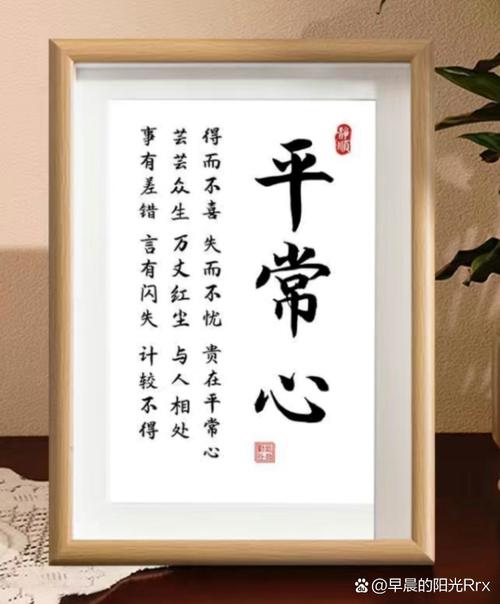 平常心
得而不喜 失而不忧 贵在平常心
芸芸众生 万丈红尘 与人相处
事有差错 言有闪失 计较不得
@早晨的阳光Rrx